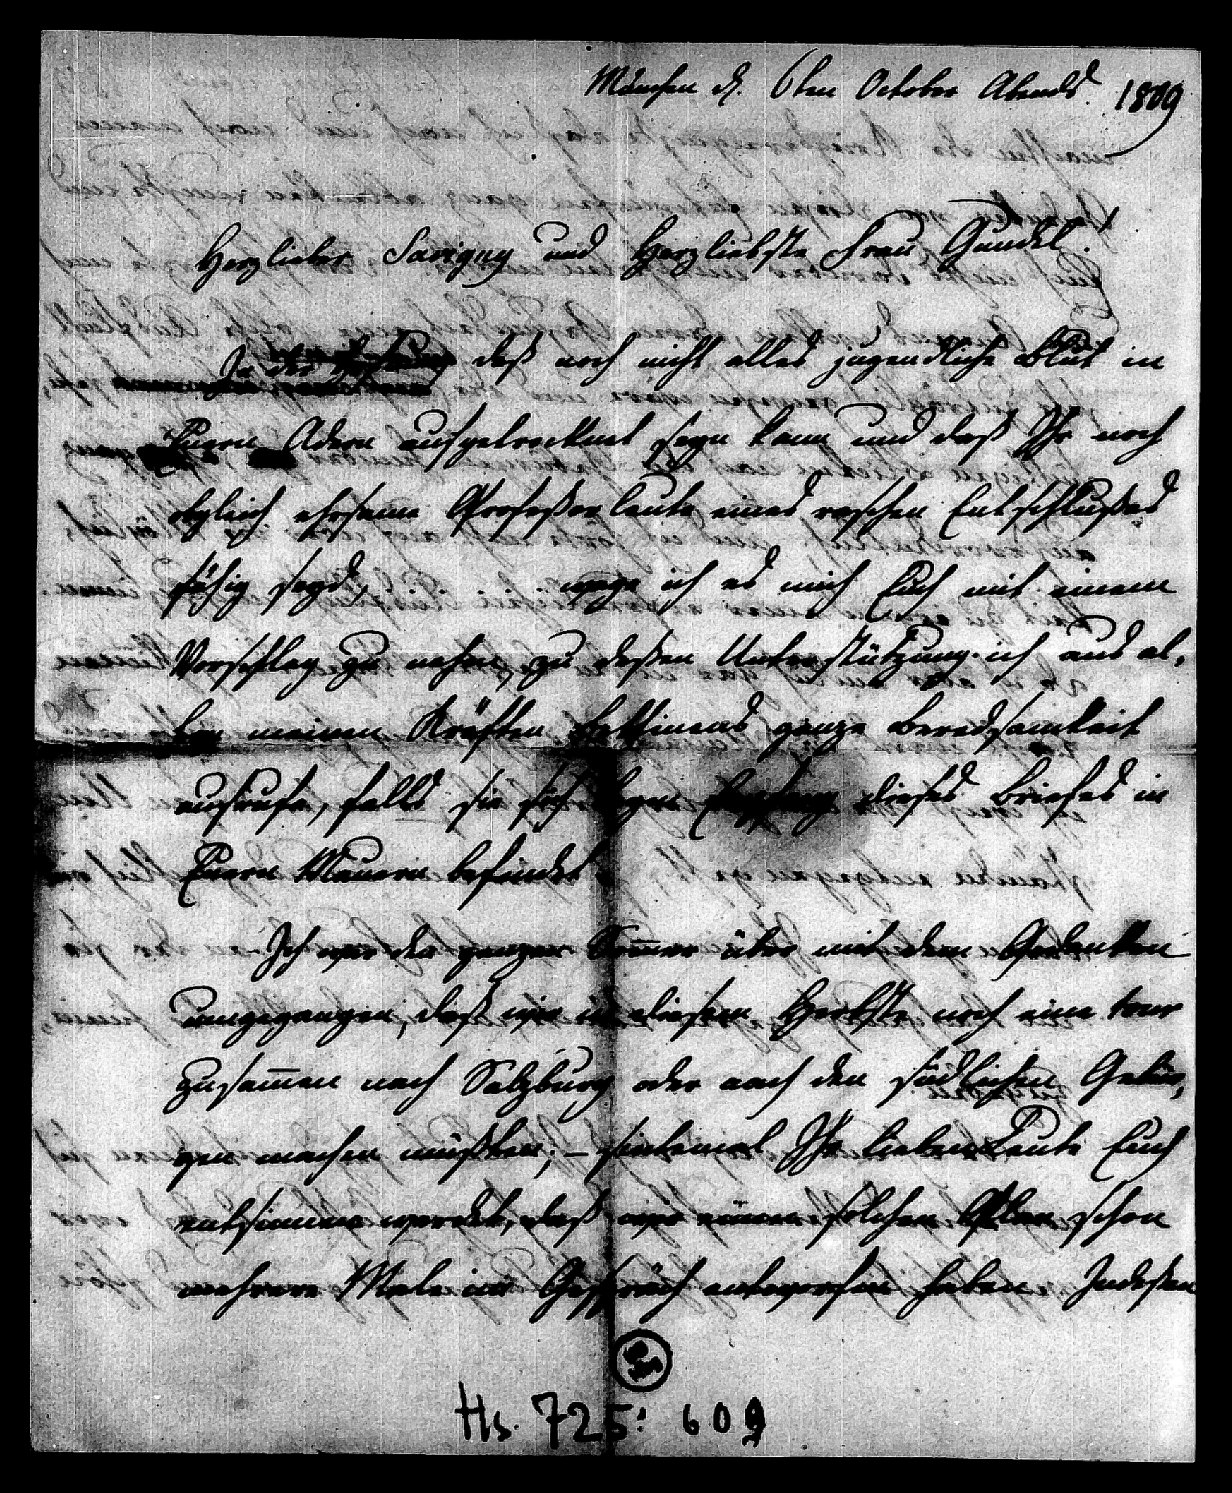 München d. 6ten October Abends. 1809
Herzlieber Savigny und Herzliebste Frau Gundel!
In der Hoffnung daß noch nicht alles jugendliche Blut in
Euern Adern aufgetrocknet seyn kann und daß Ihr noch
obgleich ehrsame Professorleute eines raschen Entschlußes
fähig seyd, wage ich es mich Euch mit einem
Vorschlag zu nahen, zu deßen Unterstützung ich aus al-
len meinen Kräften Bettinens ganze Beredsamkeit
aufrufe, falls sie sich beym Empfang dieses Briefes in
Euern Mauern befindet.
Ich war den ganzen Sommer über mit dem Gedanken
umgegangen, daß wir in diesem Herbste noch eine tour
zusammen nach Salzburg oder nach den südlichen Gebür-
gen machen müßten; – sintemal Ihr lieben Leute Euch
entsinnen werdet, daß wir einen solchen Plan schon
mehrere Male im Gespräch entworfen haben. Indeßen
Hs. 725: 609